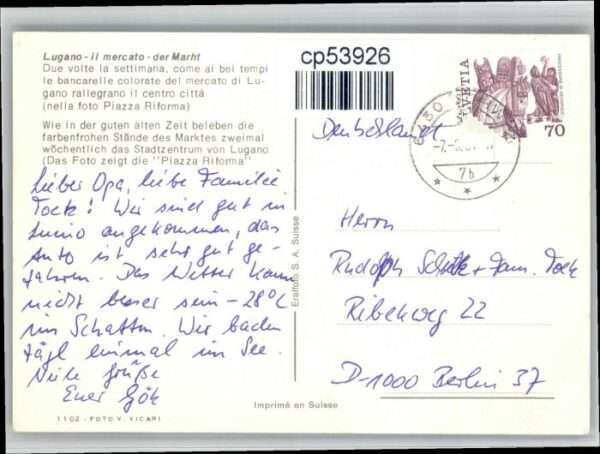 Lugano - il mercato - der Marht
Due volte la settimana, come ai bei tempi
le bancarelle colorate del mercato di Lu-
gano rallegrano il centro città
(nella foto Piazza Riforma)
Wie in der guten alten Zeit beleben die
farbenfrohen Stände des Marktes zweimal
wöchentlich das Stadtzentrum von Lugano
(Das Foto zeigt die "Piazza Riforma"
Lieber Opa, liebe Familie
Tock! Wir sind gut in
Luino angekommen, das
Auto ist sehr gut ge-
fahren. Das Wetter kann
nicht besser sein – 28°C
im Schatten. Wir baden
tägl einmal im See.
Viele Grüße
Euer Götz
1102 - FOTO V. VICARI
Eralfoto S. A. Suisse
Imprimé en Suisse
cp53926
HELVETIA
70
6430
7b
Deutschland
Herrn
Rudolph + Fam. Tock
22
D-1000 Berlin 37